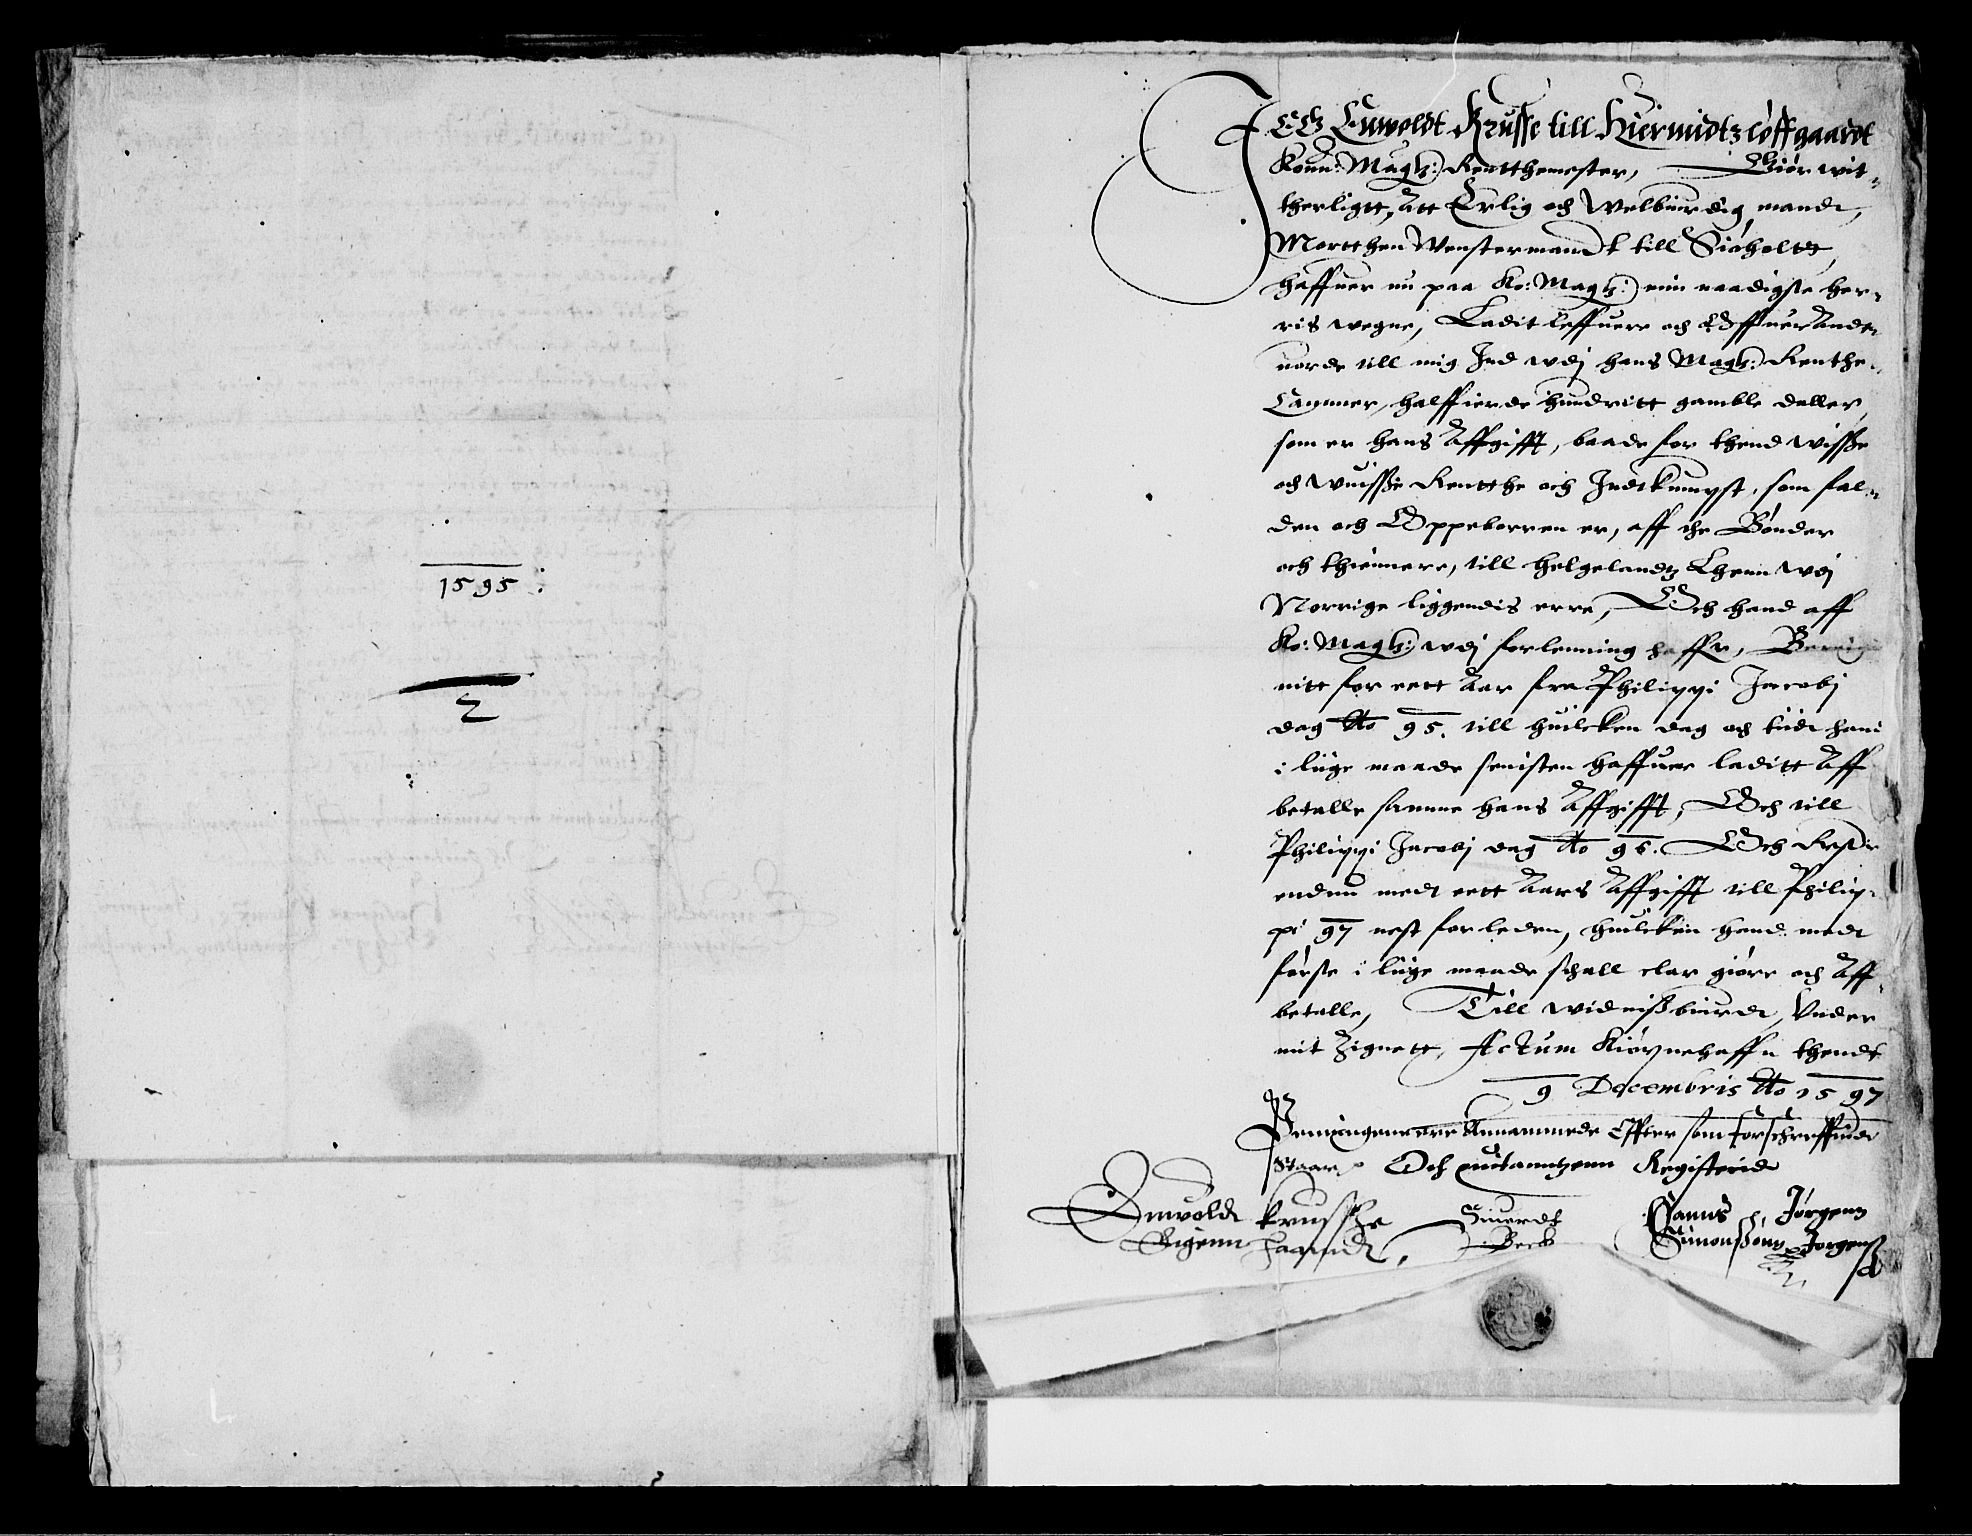 1595
2
JEG Enwoldt Krusse till Hiermidtzløffgaardt
Konn: Magtz: Rentthemester, Giør wit-
therligtt, Att Erlig och Welbiurdig mandt,
Mortthen Wenstermandt till Siøholtt,
haffuer nu paa Ko: Magtz: min naadigste her-
ris wegne, Ladit leffuere och Offuer Andt-
uorde till mig Ind wdj hans Magtz: Renthe-
Cammer, halffierde hundritt gamble daller,
som er hans Affgifft, baade for thend wisße
och wuisße Rentthe och Indtkumpst, som fal-
den och Oppeborren er, aff the Bønder
och thiennere, till Helgelandtz Lhenn wdj
Norrige liggendis erre, Och hand aff
Ko: Magtz: wdj forlenning haffr, Bereig
nitt for eett Aar fra Philippi Jacobj
dag Ao 95. till huilcken dag och tiidt hand
i liige maade senisten haffuer laditt Aff
betalle samme hans Affgifft, Och till
Philippi Jacobj dag Ao 96. Och Rester
endnu medt eett Aars Affgifft till Philip-
pi 97 nest forleden, huilcken hand medt
første i liige maade schall clar giøre och Aff-
betalle, Till widnißbiurdt, Vnder
mit Zignett, Actum Kiøpnehaffn thendt
9 Decembris Ao 1597
Penningene ere Annammede Effter som forschreffuidt
Staar Och quitantzenn Registerid
Enuoldt Krussße Siuerdt Hanns Jørgenn
Eigenn haandt, Beck Simonßønn Jørgenß